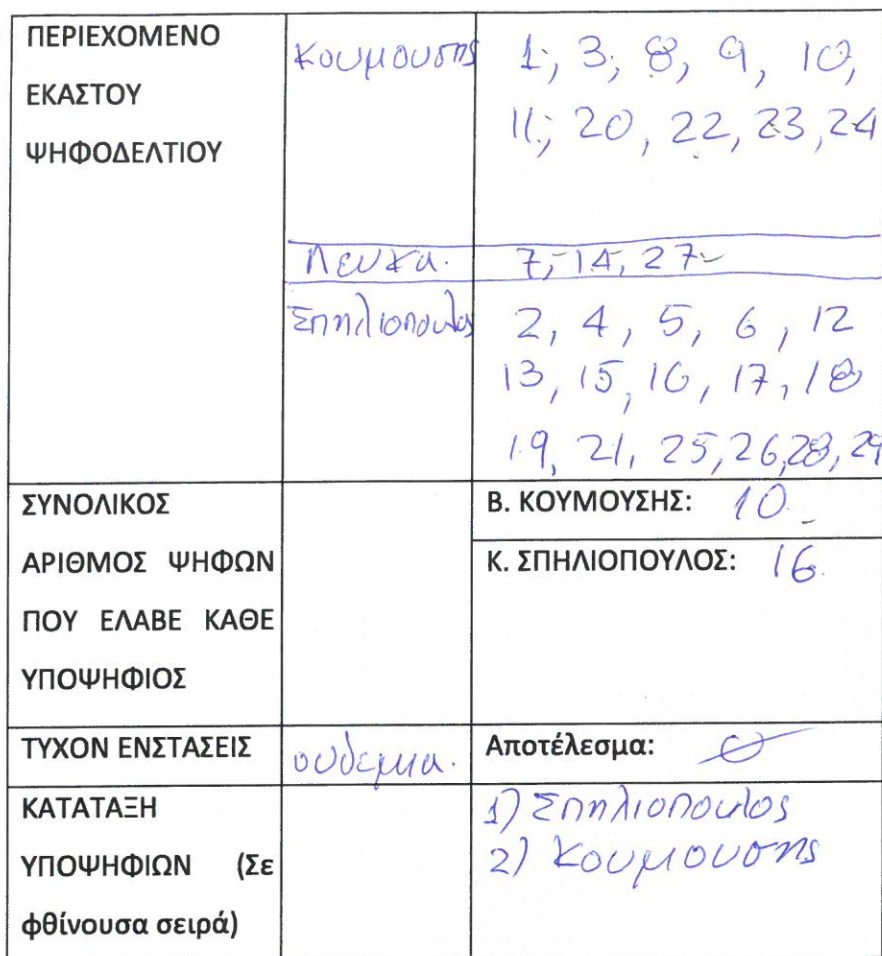 ΠΕΡΙΕΧΟΜΕΝΟ
ΕΚΑΣΤΟΥ
ΨΗΦΟΔΕΛΤΙΟΥ
Κουμουσης
1, 3, 8, 9, 10,
11, 20, 22, 23, 24
Λευκα.
7, 14, 27
Σπηλιοπουλος
2, 4, 5, 6, 12
13, 15, 16, 17, 18
19, 21, 25, 26, 28, 29
ΣΥΝΟΛΙΚΟΣ
ΑΡΙΘΜΟΣ ΨΗΦΩΝ
ΠΟΥ ΕΛΑΒΕ ΚΑΘΕ
ΥΠΟΨΗΦΙΟΣ
Β. ΚΟΥΜΟΥΣΗΣ: 10
Κ. ΣΠΗΛΙΟΠΟΥΛΟΣ: 16
ΤΥΧΟΝ ΕΝΣΤΑΣΕΙΣ
ουδεμια.
Αποτέλεσμα:
ΚΑΤΑΤΑΞΗ
ΥΠΟΨΗΦΙΩΝ (Σε
φθίνουσα σειρά)
1) Σπηλιοπουλος
2) Κουμουσης